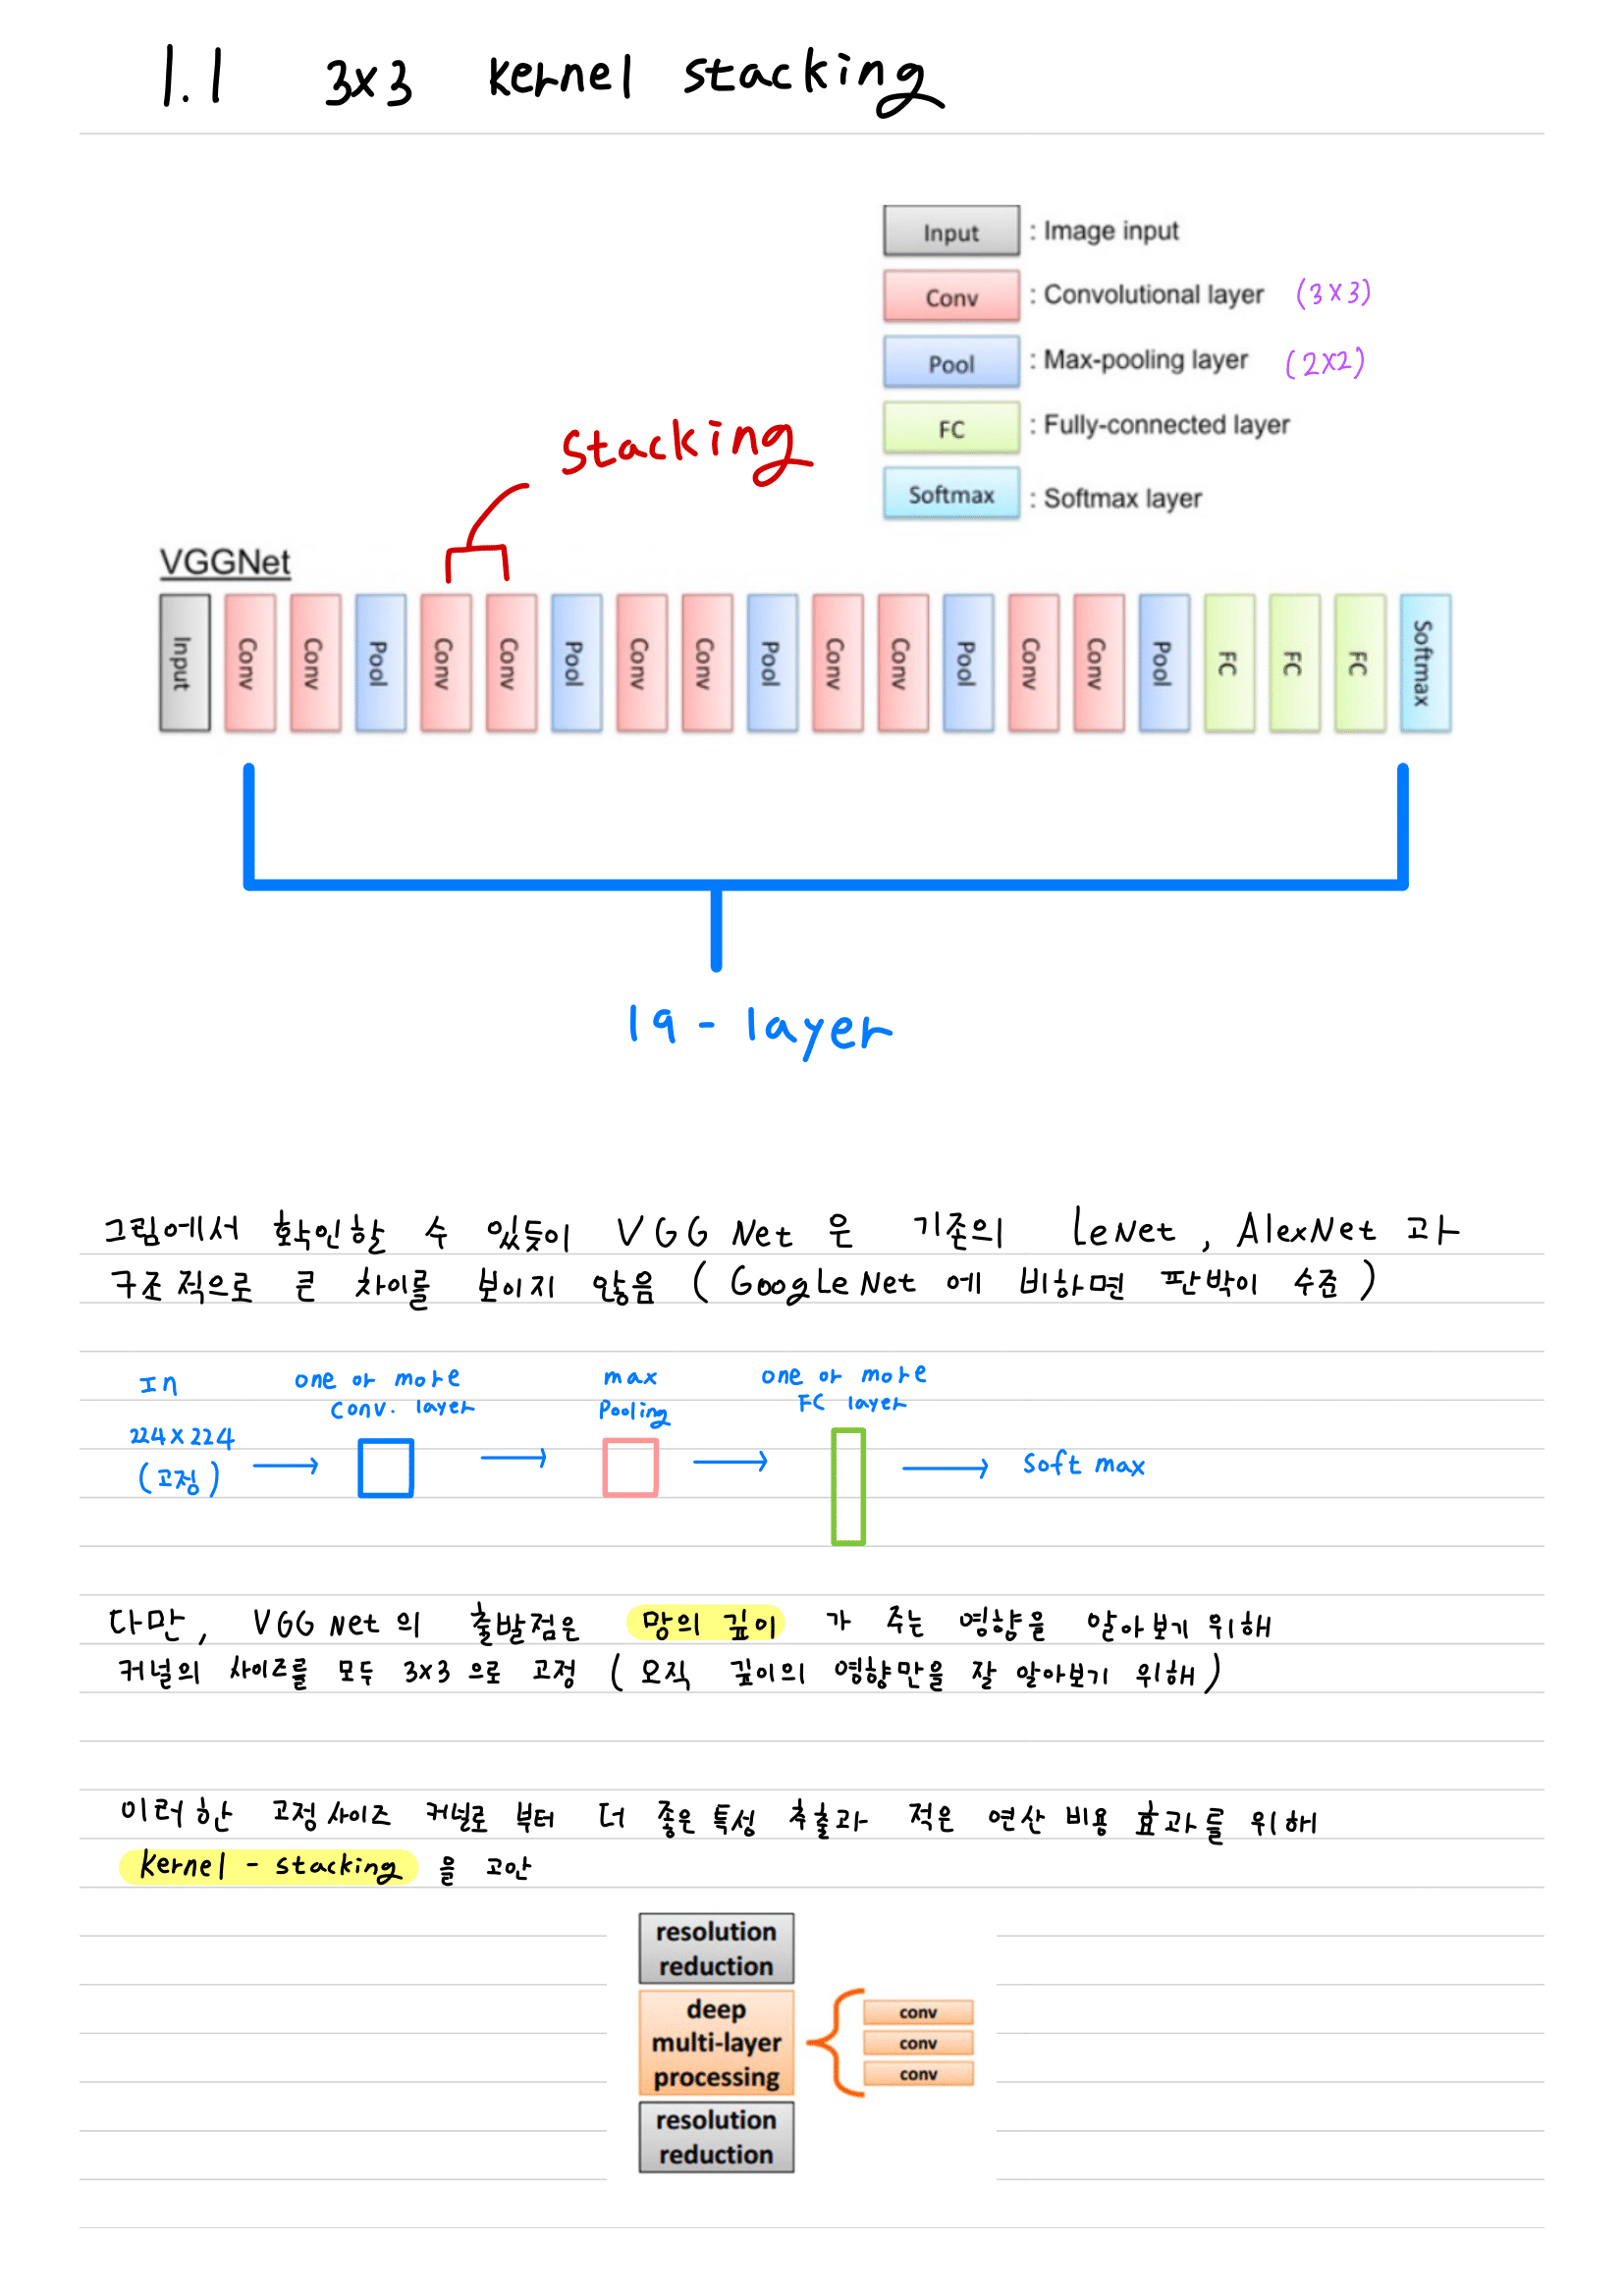 1.1 3x3 kernel stacking
Input : Image input
Conv : Convolutional layer (3x3)
Pool : Max-pooling layer (2x2)
FC : Fully-connected layer
Softmax : Softmax layer
stacking
VGGNet
Input Conv Conv Pool Conv Conv Pool Conv Conv Pool Conv Conv Pool Conv Conv Pool FC FC FC Softmax
19-layer
그림에서 확인할 수 있듯이 VGG Net 은 기존의 LeNet, AlexNet 과
구조적으로 큰 차이를 보이지 않음 ( GoogLeNet 에 비하면 판박이 수준 )
In
224x224
(고정)
one or more
conv. layer
max
pooling
one or more
FC layer
soft max
다만, VGG Net 의 출발점은 망의 깊이 가 주는 영향을 알아보기 위해
커널의 사이즈를 모두 3x3 으로 고정 ( 오직 깊이의 영향만을 잘 알아보기 위해)
이러한 고정사이즈 커널로 부터 더 좋은 특성 추출과 적은 연산 비용 효과를 위해
kernel - stacking 을 고안
resolution
reduction
deep
multi-layer
processing
conv
conv
conv
resolution
reduction